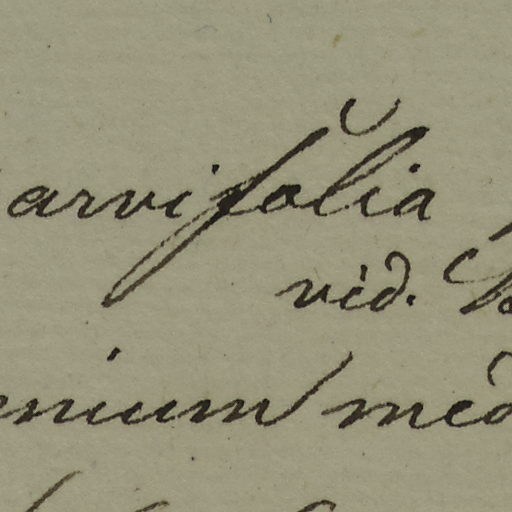 arvifolia
vid.
nium med